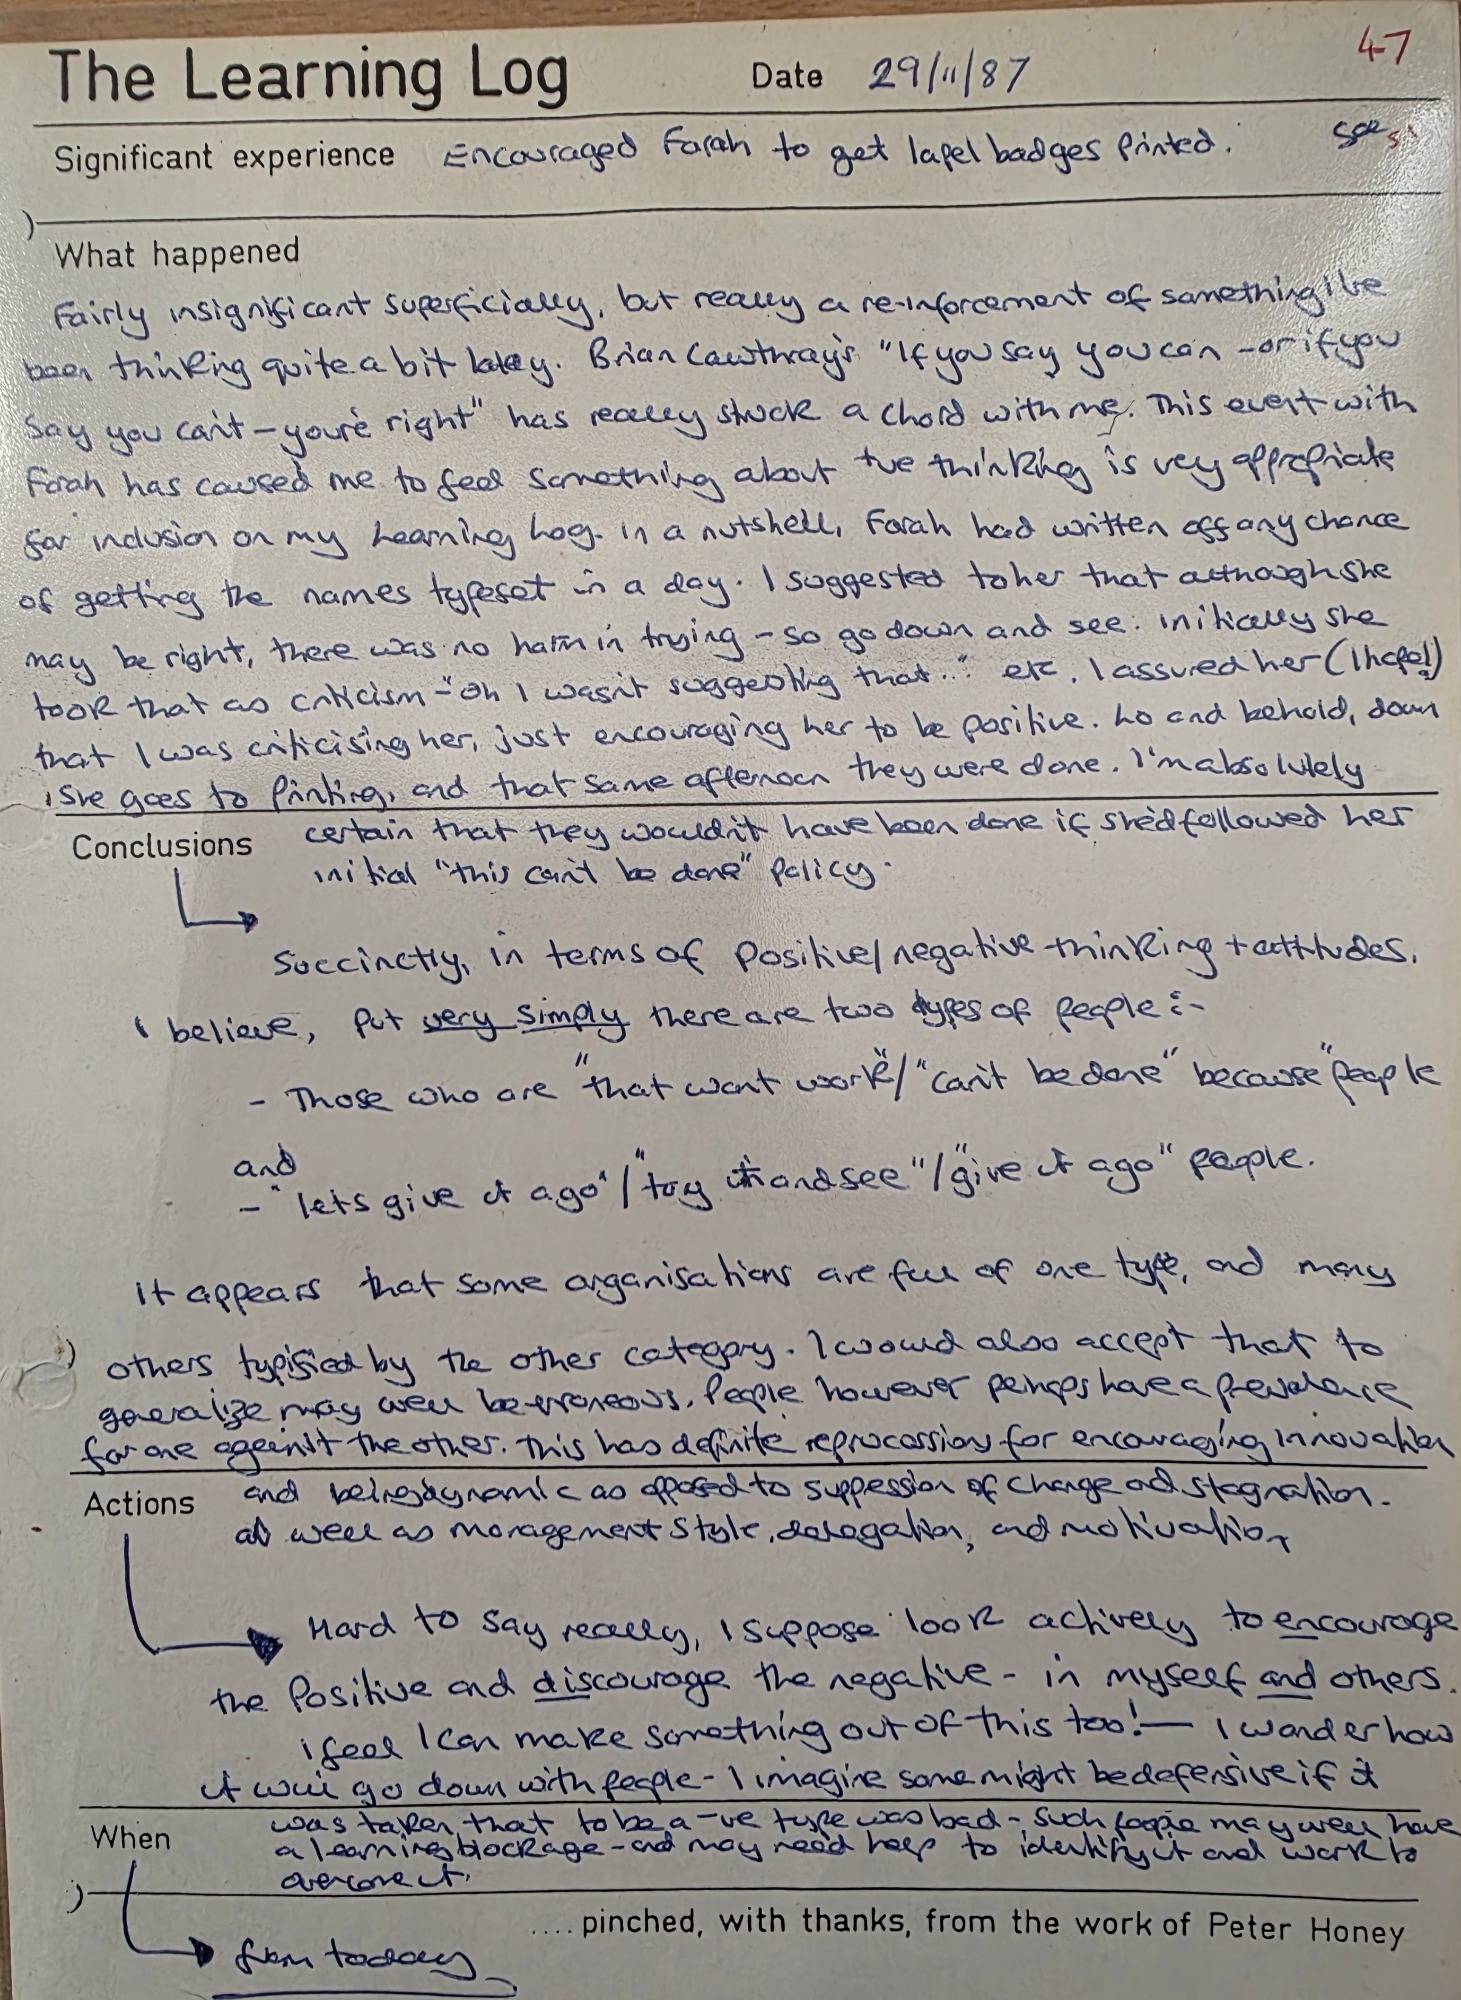 47
The Learning Log Date 29/11/87
Significant experience Encouraged Farah to get lapel badges printed. see 51
What happened
Fairly insignificant superficially, but really a re-inforcement of something i've
been thinking quite a bit lately. Brian Cawthray's "If you say you can - or if you
say you can't - you're right" has really struck a chord with me. This event with
Farah has caused me to feel something about +ve thinking is very appropriate
for inclusion on my Learning Log. In a nutshell, Farah had written off any chance
of getting the names typeset in a day. I suggested to her that although she
may be right, there was no harm in trying - so go down and see. initially she
took that as criticism - "oh I wasn't suggesting that..." etc. I assured her (I hope!)
that I was criticising her, just encouraging her to be positive. Lo and behold, down
she goes to printing, and that same afternoon they were done. I'm absolutely
Conclusions certain that they wouldn't have been done if she'd followed her
initial "this can't be done" policy.
Succinctly, in terms of positive/negative thinking + attitudes.
I believe, put very simply there are two types of people :-
- Those who are "that wont work"/"can't be done" because" people
and
- "lets give it a go"/"try it and see"/"give it a go" people.
it appears that some organisations are full of one type, and many
others typified by the other category. I would also accept that to
generalize may well be erroneous. People however perhaps have a prevalence
for one against the other. This has definite reprocussions for encouraging innovation
Actions and being dynamic as opposed to suppession of change and stagnation.
as well as management style, delegation, and motivation
Hard to say really, I suppose look actively to encourage
the positive and discourage the negative - in myself and others.
i feel I can make something out of this too! — I wonder how
it will go down with people - I imagine some might be defensive if it
When was taken that to be a -ve type was bad - such people may well have
a learning blockage - and may need help to identify it and work to
overcome it.
.... pinched, with thanks, from the work of Peter Honey
from today